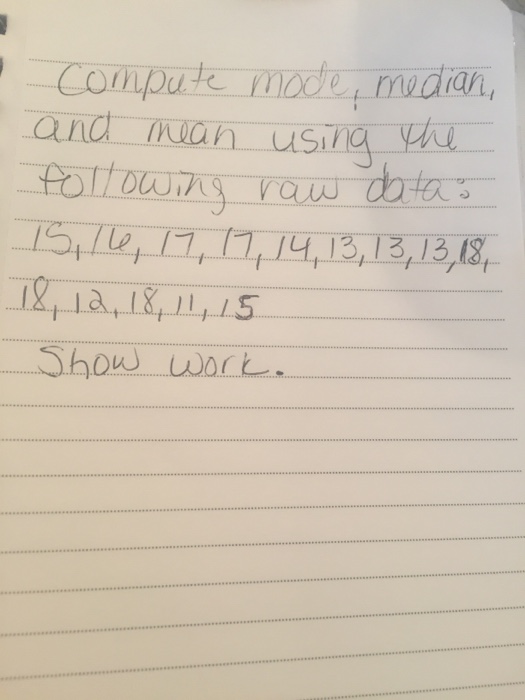 Compute mode, median,
and mean using the
following raw data:
15, 16, 17, 17, 14, 13, 13, 13, 18,
18, 12, 18, 11, 15
Show work.